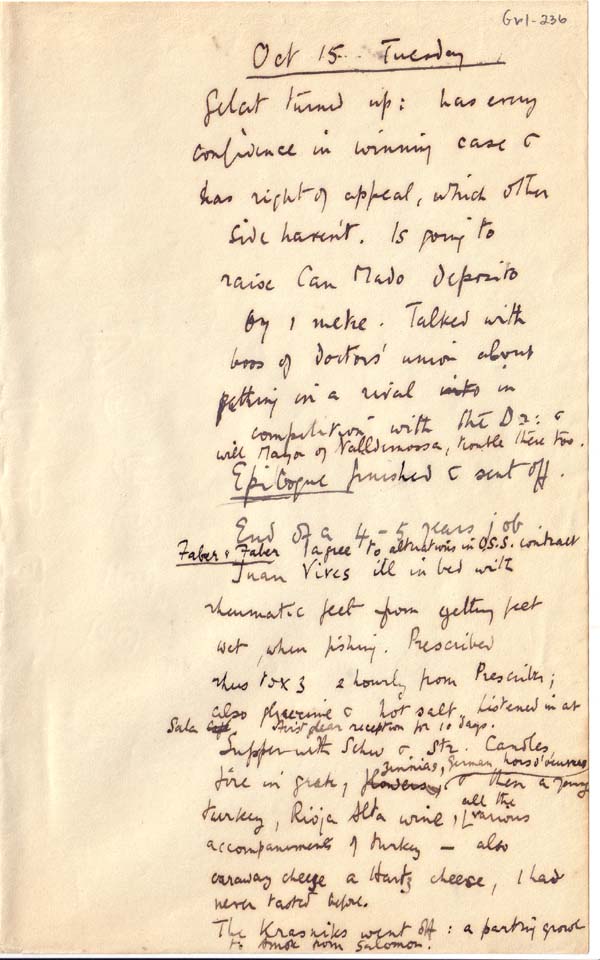 Gv1-236
Oct 15. Tuesday
Gelat turned up: has every
confidence in winning case &
has right of appeal, which other
side haven't. Is going to
raise Can Mado deposito
by 1 metre. Talked with
boss of doctors' union about
putting in a rival into in
competition with the Dr: &
will Mayor of Valldemossa, trouble there too.
Epilogue finished & sent off.
End of a 4-5 years job
Faber & Faber I agree to alterations in O.S.S. contract
Juan Vives ill in bed with
rheumatic feet from getting feet
wet when fishing. Prescribed
rhus tox 3 2 hourly from Prescriber;
also glycerine & hot salt. Listened in at
Sala first clear reception for 10 days.
Supper with Schw & Str. Candles,
fire in grate, flowers, zinnias, German hors d'oeuvres & then a young
turkey, Rioja Alta wine, all the various
accompaniments of turkey — also
caraway cheese a Hartz cheese, I had
never tasted before.
The Krasniks went off: a parting growl
to from Salomon.